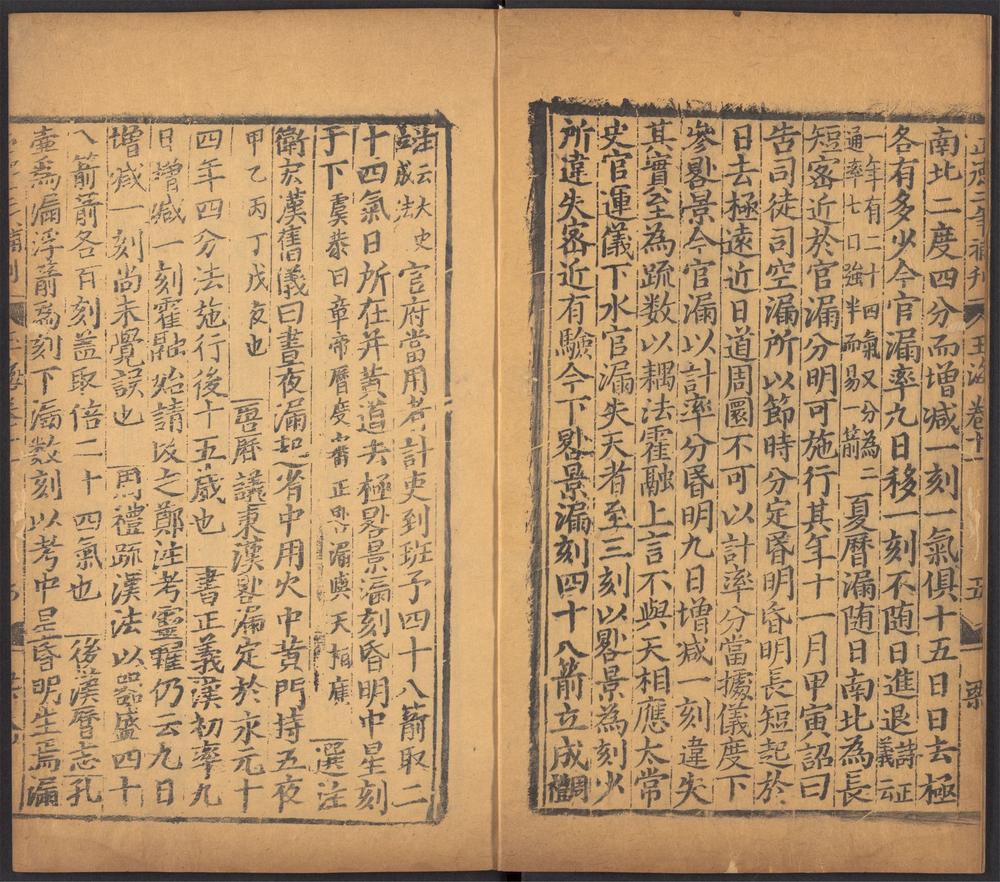 正德二年補刊 玉海卷十一 五
南北二度四分而增減一刻一氣俱十五日日去極
各有多少今官漏率九日移一刻不隨日進退詩正義云
一年有二十四氣又分為二通率七日強半而易一箭夏曆漏隨日南北為長
短密近於官漏分明可施行其年十一月甲寅詔曰
告司徒司空漏所以節時分定昏明昏明長短起於
日去極遠近日道周圜不可以計率分當據儀度下
參晷景今官漏以計率分昏明九日增減一刻違失
其實至為疏數以耦法霍融上言不與天相應太常
史官運儀下水官漏失天者至三刻以晷景為刻少
所違失密近有驗今下晷景漏刻四十八箭立成周禮
注云大史立成法官府當用者計吏到班予四十八箭取二
十四氣日所在并黃道去極晷景漏刻昏明中星刻
于下袁恭曰章帝曆度審正晷漏與天相應選注
衛宏漢舊儀曰晝夜漏起省中用火中黃門持五夜
甲乙丙丁戊夜也晉曆議東漢晷漏定於永元十
四年四分法施行後十五歲也書正義漢初率九
日增減一刻霍融始請改之鄭注考靈耀仍云九日
增減一刻尚未覺誤也周禮疏漢法以器盛四十
八箭箭各百刻蓋取倍二十四氣也後漢曆志孔
壷為漏浮箭為刻下漏數刻以考中星昏明生焉漏